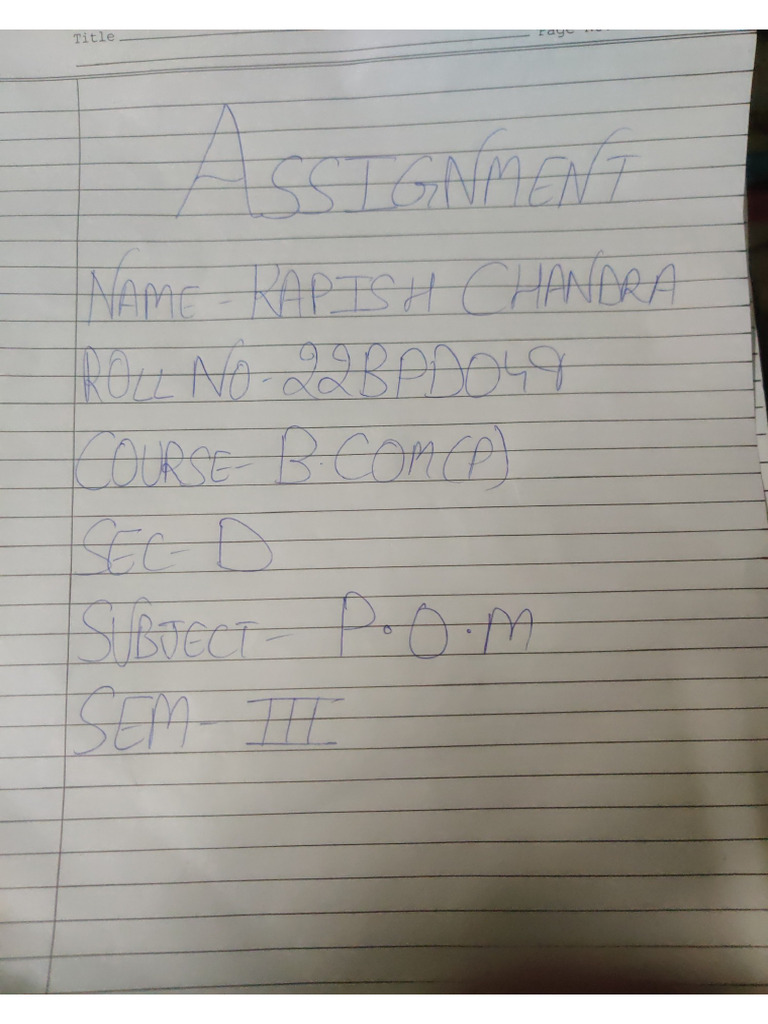 Title
Page No.
ASSIGNMENT
NAME - KAPISH CHANDRA
ROLL NO - 22BPD049
COURSE - B.COM(P)
SEC - D
SUBJECT - P.O.M
SEM - III